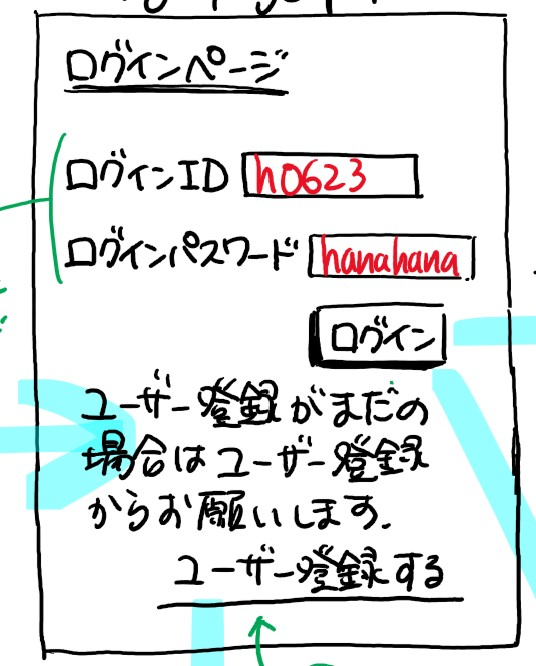 ログインページ
ログインID h0623
ログインパスワード hanahana
ログイン
ユーザー登録がまだの
場合はユーザー登録
からお願いします.
ユーザー登録する